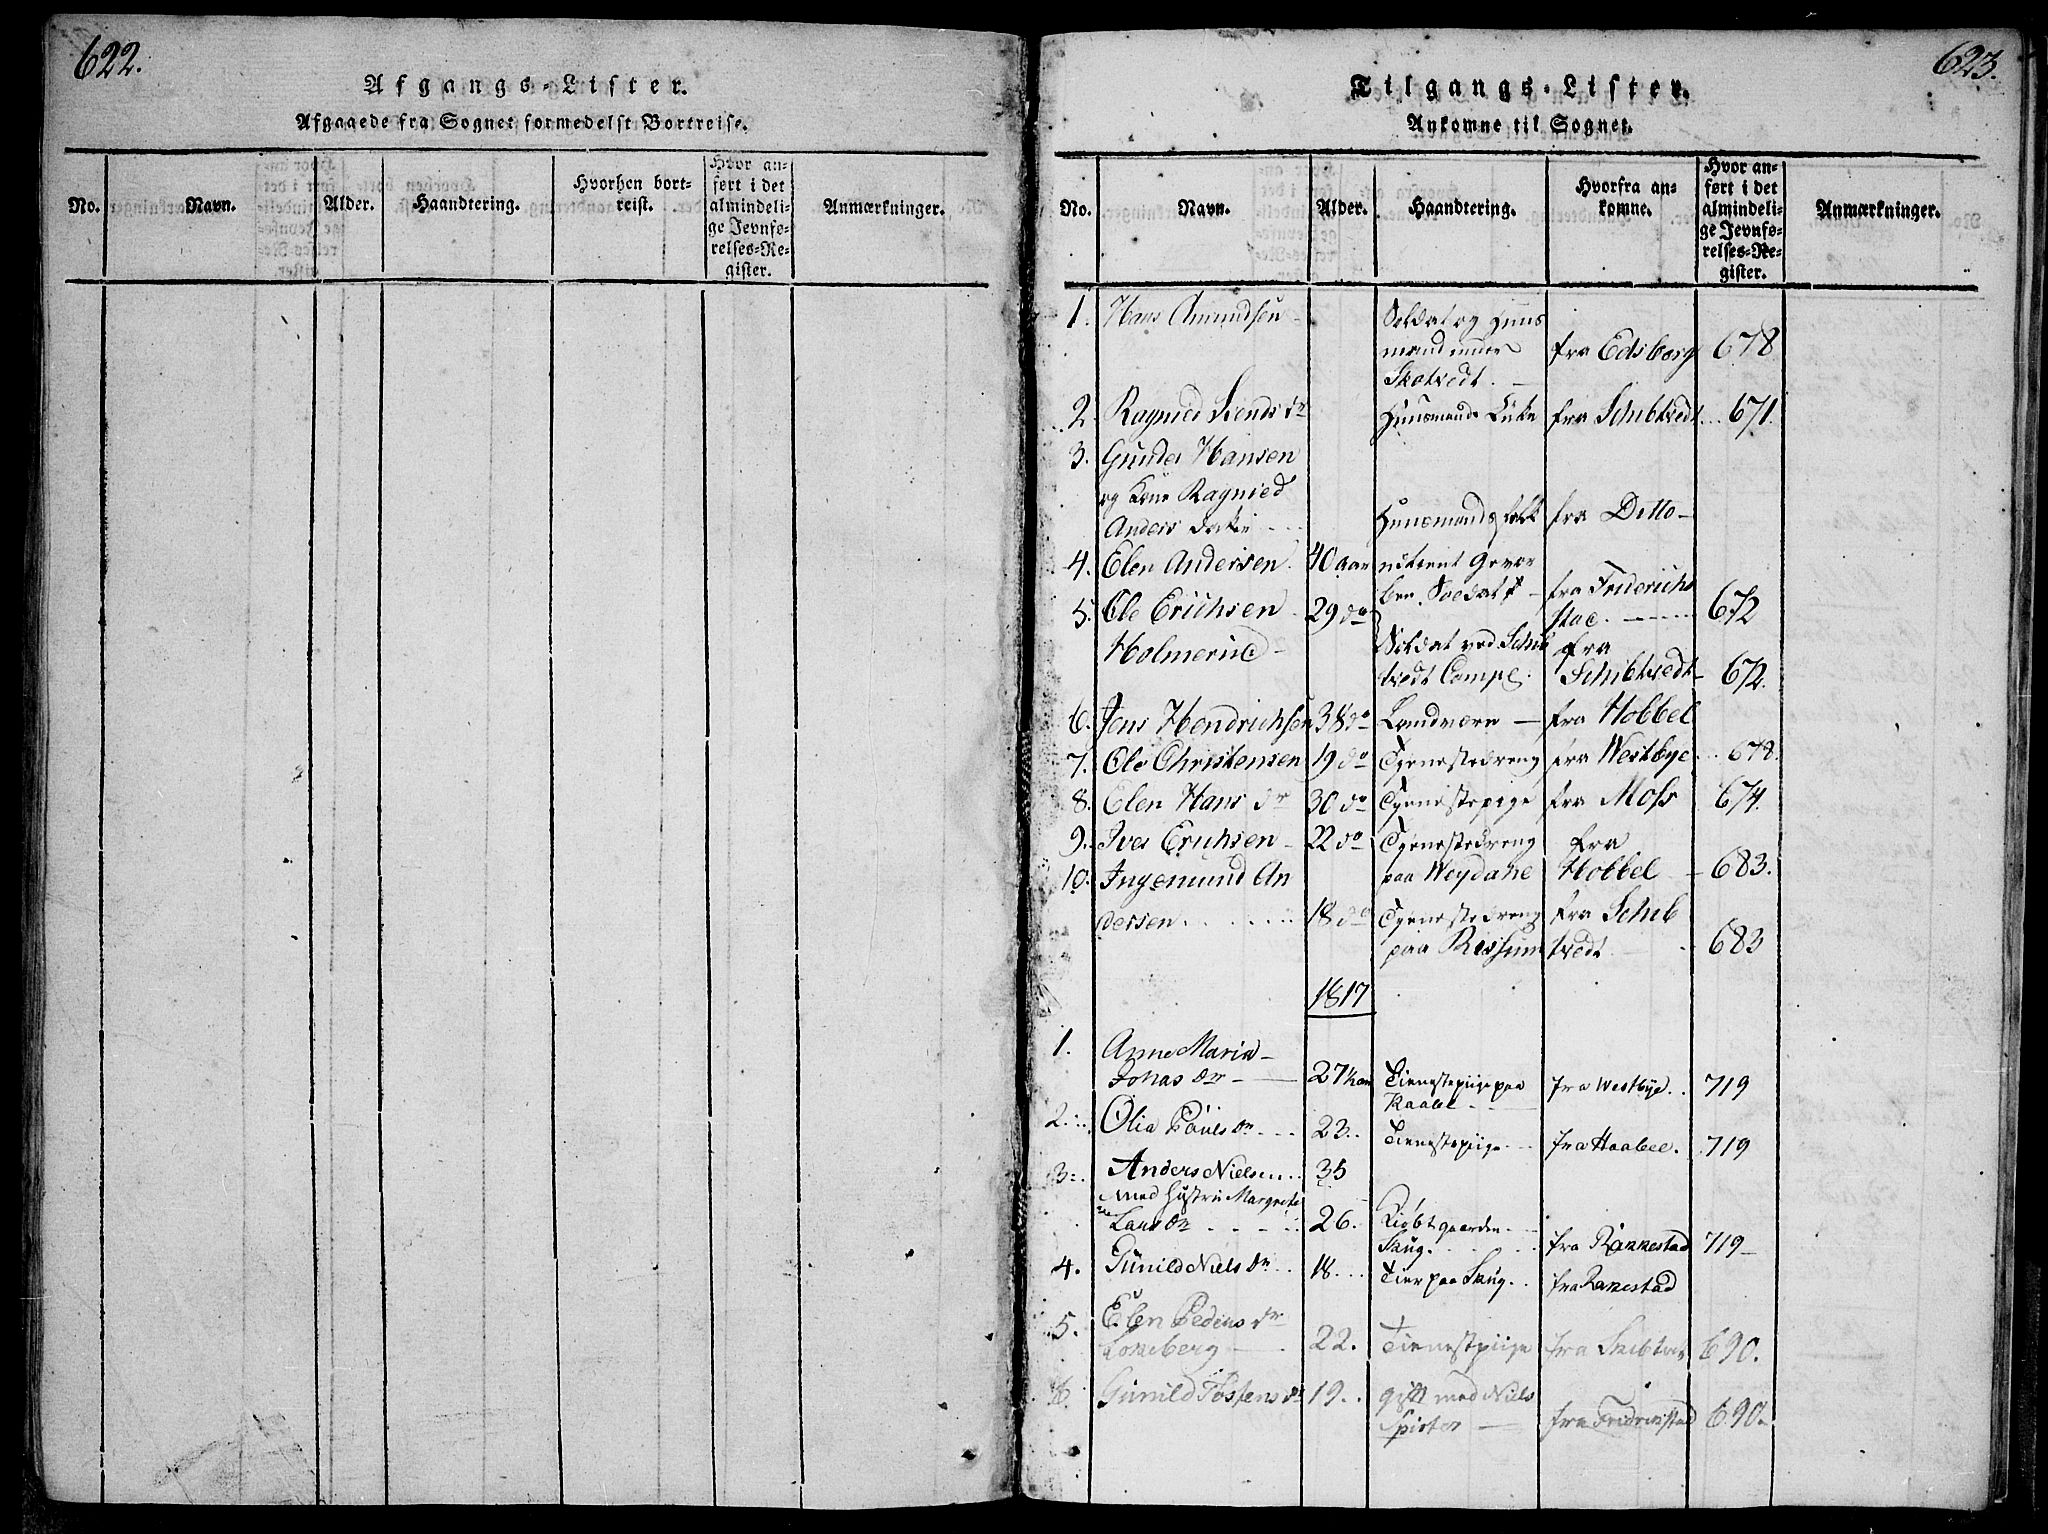 622.
Afgangs-Lister.
Afgaaede fra Sognet formedelst Bortreise.
No. Navn. Alder. Haandtering. Hvorhen bortreist. Hvor anført i det almindelige Jevnførelses-Register. Anmærkninger.
623.
Tilgangs-Lister.
Ankomne til Sognet.
No. Navn. Alder. Haandtering. Hvorfra ankomne. Hvor anført i det almindelige Jevnførelses-Register. Anmærkninger.
1. Hans Amundsen Soldat og Huus
mand
fra Edsberg 678
Skotvedt.
2. Ragnild Svends dr Huusmands Enke fra Schibtvedt 671.
3. Gunder Hansen
og Kone Ragnied
Anders datter Huusmandsfolk fra Ditto
4. Elen Andersen 40 aar Gevor
ben Soldat fra Friderich
stad. 672
5. Ole Erichsen 29 do
Holmerud Soldat ved Schib
tvedt Comp. fra
Schibtvedt 672.
6. Jens Hendrichsen 38 do Landværn fra Hobbel
7. Ole Christensen 19 do Tjenestedreng fra Westbye 678.
8. Elen Hans dr 30 do Tjenestepige fra Moss 674.
9. Iver Erichsen 22 do Tjenestedreng fra
paa Weydahl Hobbel 683.
10. Ingemund An
dersen 18 do Tjenestedreng fra Schib
paa Rissum tvedt 683
1817
1. Anne Maria
Johas dr 27 Tienestepiige paa
Kaabel fra Westbye 719
2. Olia Pouls dr 23. Tienestepiige fra Haabel. 719
3. Anders Nielsen 35
med Hustru Margrete
Lars dr 26. Kiøbt gaarden
Skug. fra Rakkestad 719
4. Gunild Niels dr 18. Tien paa Skug. fra Rakestad
5. Elen Peders dr
Loneberg 22. Tienestpiige fra Skibtvet 690.
6. Gunild Tostens dr 19. gift med Niels
fra Fridrikstad 690.